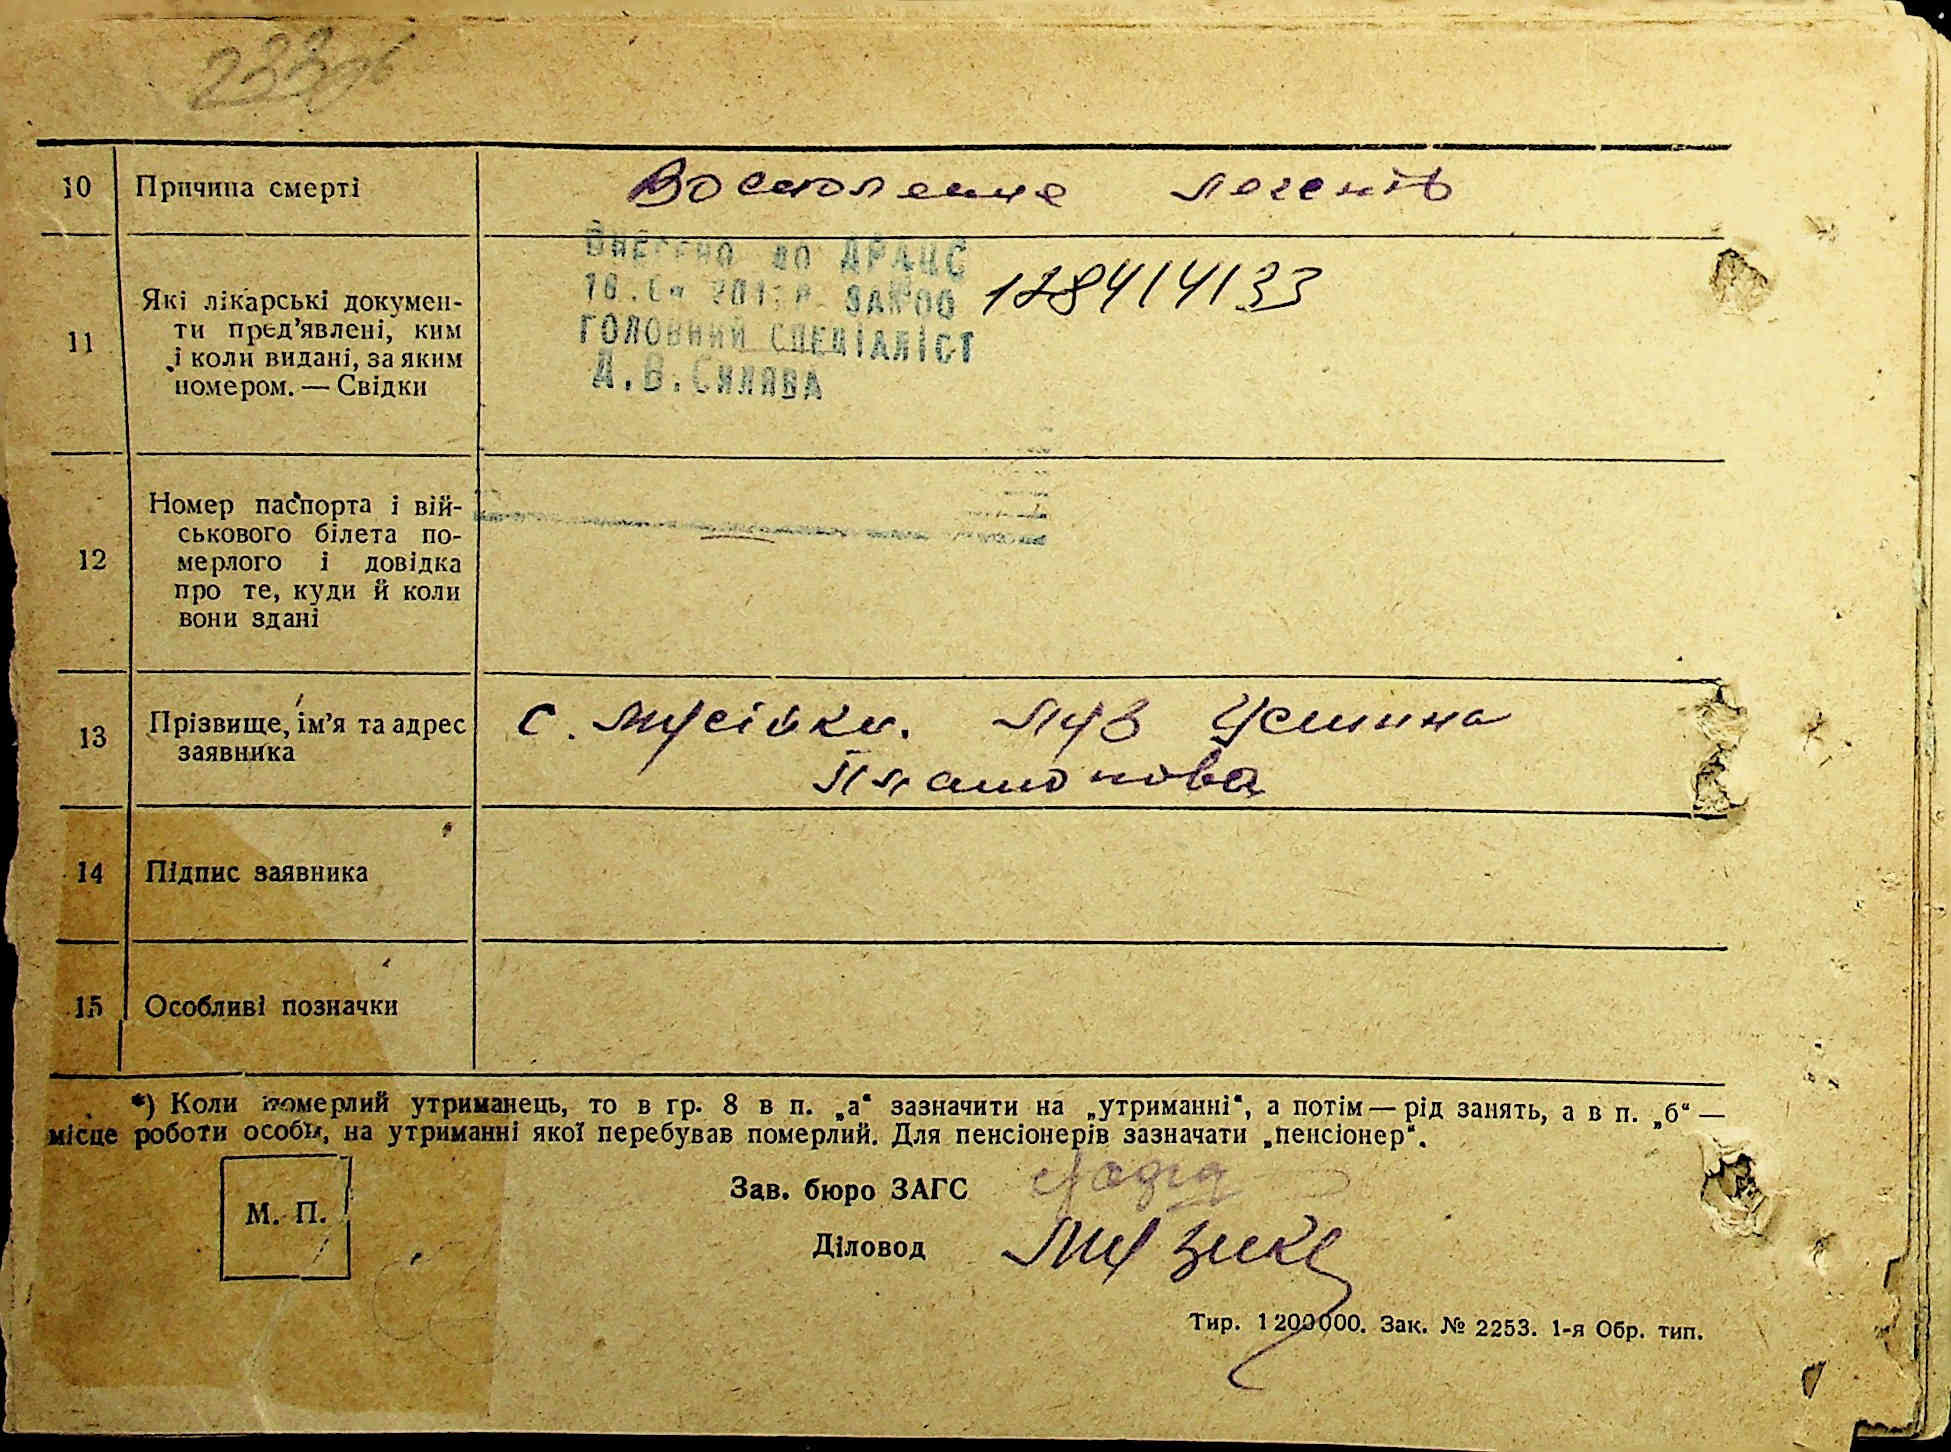 10 Причина смерті Воспаление легенів
Внесено до ДРАЦС
ГОЛОВНИЙ СПЕЦІАЛІСТ
А.В.Силява
11 Які лікарські докумен-
ти пред’явлені, ким
і коли видані, за яким
номером. — Свідки
12 Номер паспорта і вій-
ськового білета по-
мерлого і довідка
про те, куди й коли
вони здані
13 Прізвище, ім’я та адрес
заявника
с. Мусівки. Луз Устина
Платонова
14 Підпис заявника
15 Особливі позначки
*) Коли померлий утриманець, то в гр. 8 в п. „а“ зазначити на „утриманні“, а потім — рід занять, а в п. „б“ —
місце роботи особи, на утриманні якої перебував померлий. Для пенсіонерів зазначати „пенсіонер“.
М. П.
Зав. бюро ЗАГС
Діловод
Тир. 1 200 000. Зак. № 2253. 1-я Обр. тип.